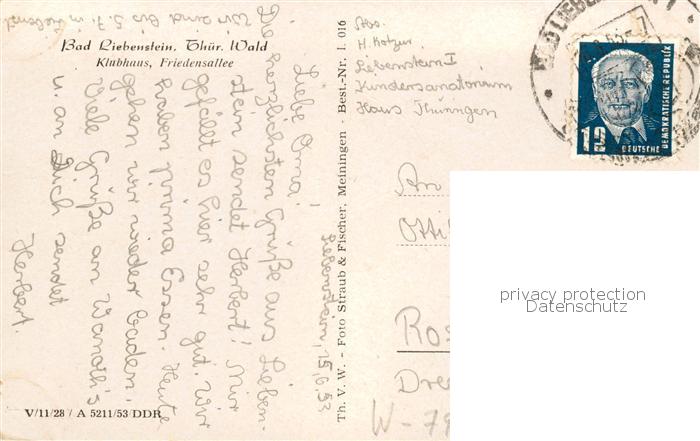 Bad Liebenstein, Thür. Wald
Klubhaus, Friedensallee
Wir sind bis 5.7. in Liebenst.
Liebenstein, 15.6.53
Liebe Oma!
Die herzlichsten Grüße aus Lieben-
stein sendet Herbert! Mir
gefällt es hier sehr gut. Wir
haben prima Essen. Heute
gehen wir wieder baden.
Viele Grüße an
u. an Dich sendet
Herbert.
V/11/28 / A 5211/53 DDR
Th. V. W. - Foto Straub & Fischer, Meiningen - Best.-Nr. L 016
Abs.
H. Kotzur
Liebenstein I
Kindersanatorium
Haus Thüringen
12
DEUTSCHE
DEMOKRATISCHE REPUBLIK
An
Otti
Ros
Dre
W-79
privacy protection
/ Datenschutz